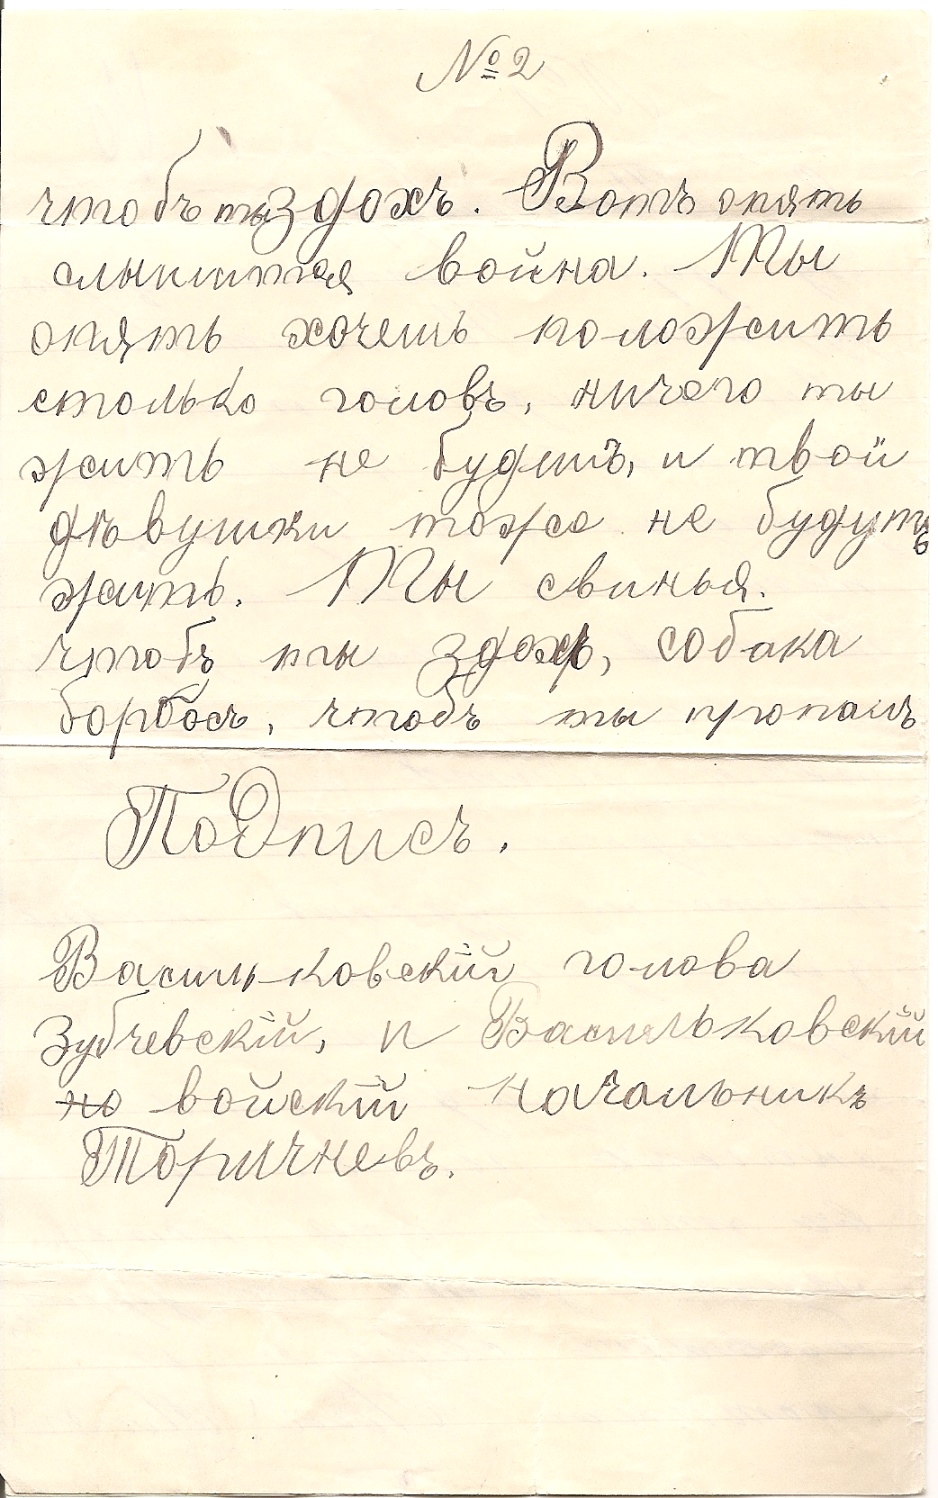 № 2
чтобъ ты здохъ. Вотъ опять
слышится война. Ты
опять хочешь положить
столько головъ, ничего ты
жить не будишъ, и твои
дѣвушки тоже не будутъ
жить. Ты свинья.
чтобъ ты здохъ, собака
борбосъ, чтобъ ты пропалъ
Подписъ.
Васильковскій голова
Зубчевскій, и Васильковскій
но войскій начальникъ
Торичневъ.